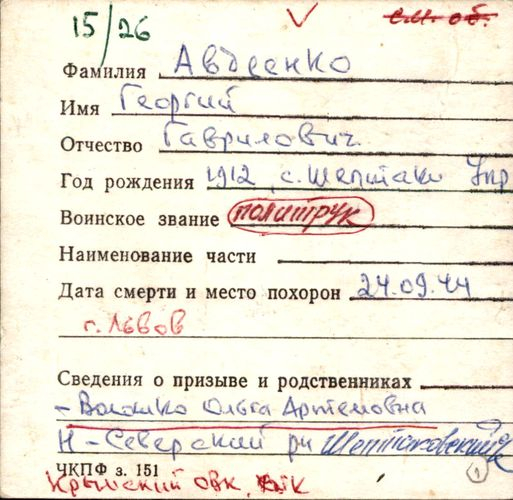 15/26
Фамилия Авдеенко
Имя Георгий
Отчество Гаврилович
Год рождения 1912, с. Шептаки Укр
Воинское звание политрук
Наименование части
Дата смерти и место похорон 24.09.44
г. Львов
Сведения о призыве и родственниках
- Волошко Ольга Артемовна
Н-Северский рн Шептаковский
ЧКПФ з. 151
1
Крымский ОВК,